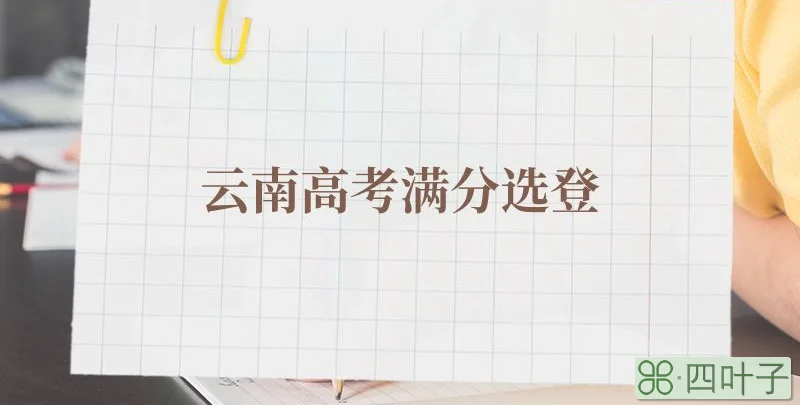 云南高考满分选登
四叶子